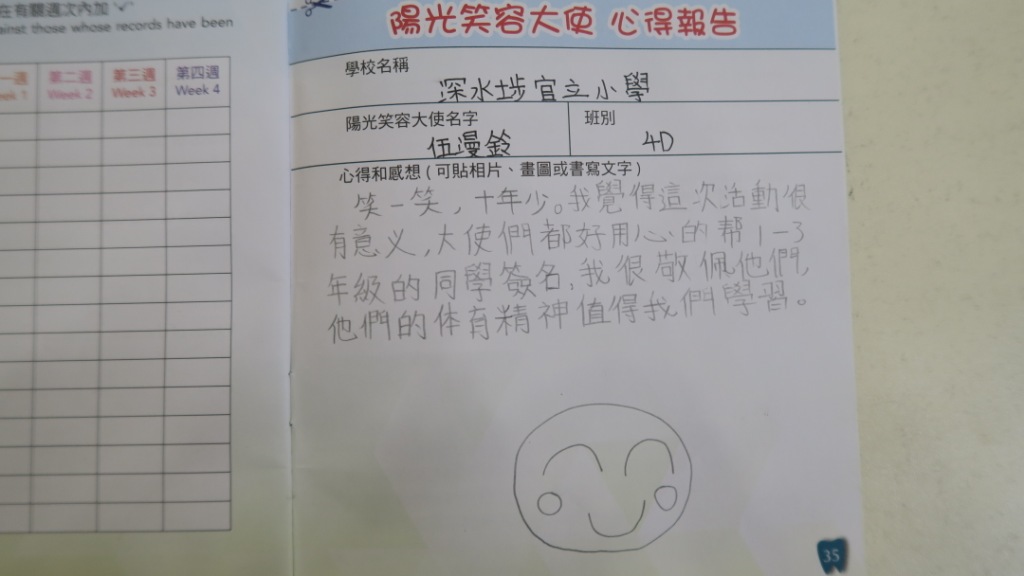 在有關週次內加 ✓
ainst those whose records have been
一週 第二週 第三週 第四週
eek 1 Week 2 Week 3 Week 4
陽光笑容大使 心得報告
學校名稱
深水埗官立小學
陽光笑容大使名字 班別
伍漫鈴 4D
心得和感想 ( 可貼相片、畫圖或書寫文字 )
笑一笑，十年少。我覺得這次活動很
有意义，大使們都好用心的帮1-3
年級的同學簽名，我很敬佩他們，
他們的体育精神值得我們學習。
35